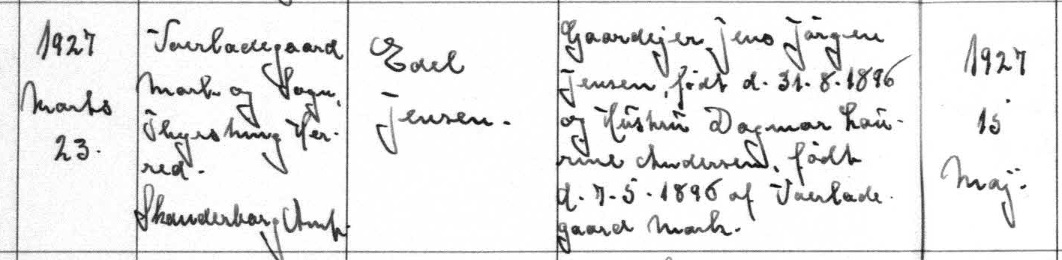 1927
Marts
23.
Voerladegaard
Mark og Sogn,
Thyrsting Her-
red.
Skanderborg Amt.
Edel
Jensen.
Gaardejer Jens Jörgen
Jensen, født d. 31.8.1896
og Hustru Dagmar Lau-
rine Andersen, født
d. 7.5.1896 af Voerlade-
gaard Mark.
1927
15
Maj.